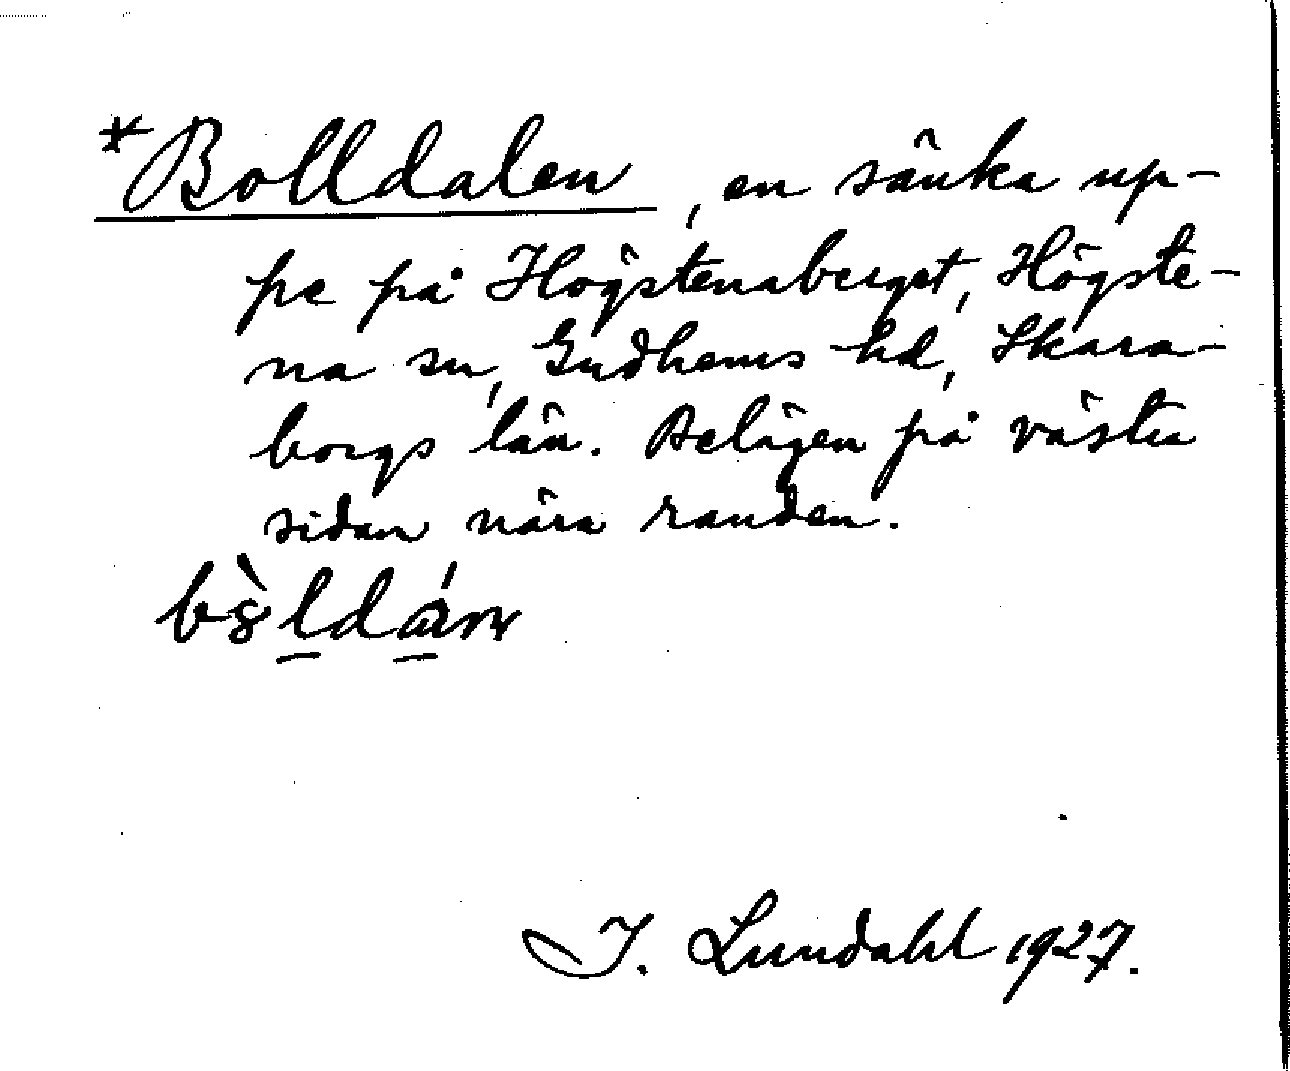 *Bolldalen, en sänka up-
pe på Högstenaberget, Högste-
na sn, Gudhems hd, Skara-
borgs län. Belägen på västra
sidan nära randen.
I. Lundahl 1927.